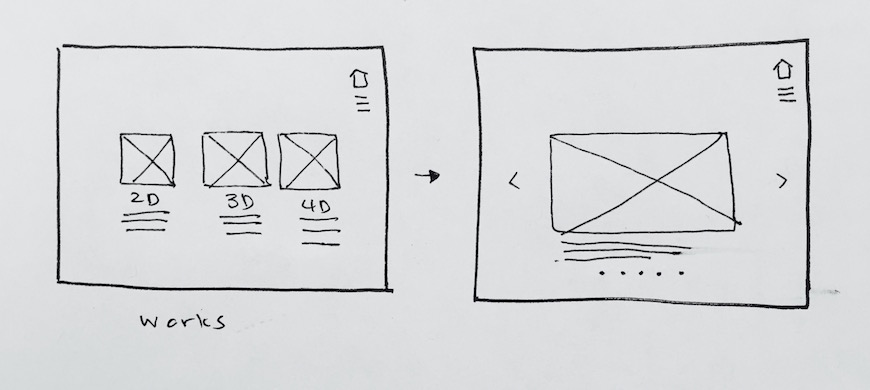 2D 3D 4D
Works